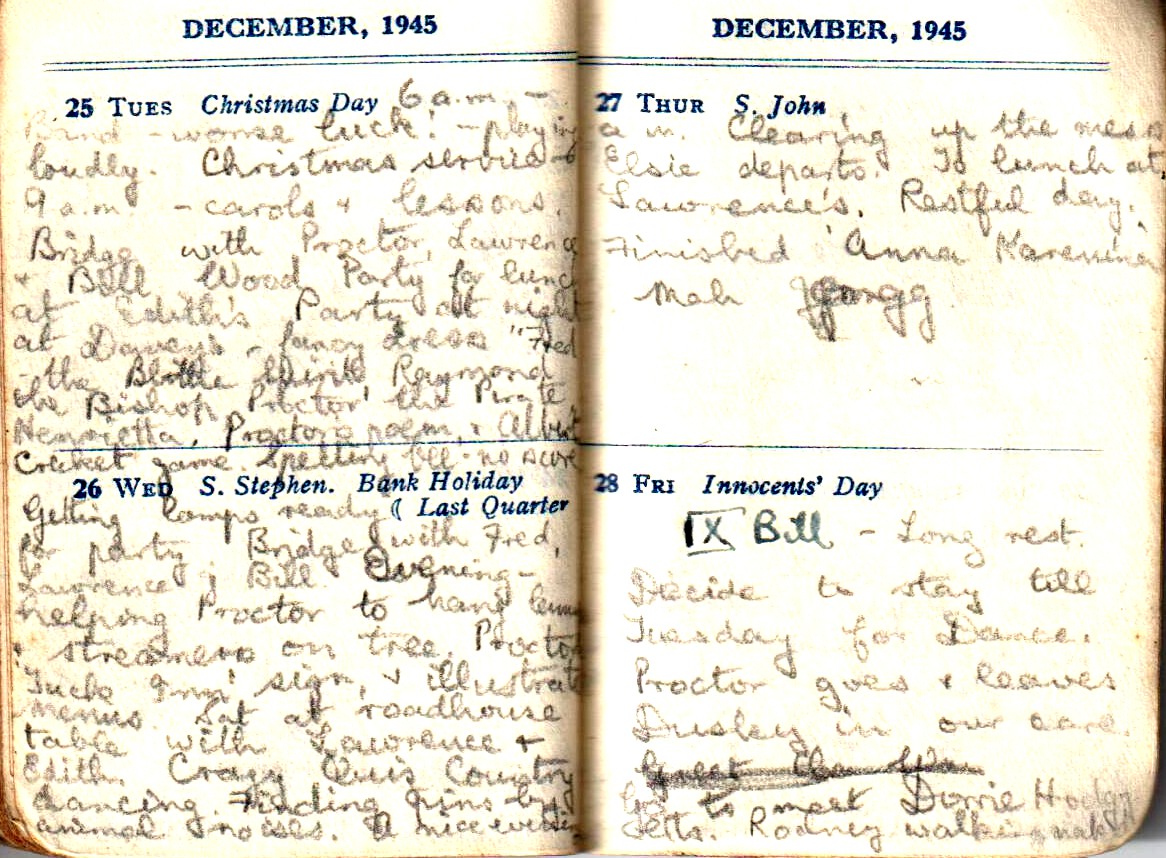 DECEMBER, 1945
25 TUES Christmas Day 6 a.m. -
Band - worse luck! - playing
loudly. Christmas service
9 a.m. - carols + lessons.
Bridge with Proctor, Lawrence
+ Bill Wood Party for lunch
at Edith's Party at night
at Davey's - fancy dress "Fred
- the Raymond
the Bishop Proctor the Pirate
Henrietta, Proctors poem, + Albert
Cricket game. Spelling bee - no score
26 WED S. Stephen. Bank Holiday
( Last Quarter
Getting lamps ready
for party. Bridge with Fred,
Lawrence + Bill. Evening -
helping Proctor to hang
+ streamers on tree, Proctor
Tucks Inn' sign, + illustrate
menus. Sat at roadhouse
table with Lawrence +
Edith. Crazy Quis Country
dancing. Finding pins by
animal noises. A nice evening
DECEMBER, 1945
27 THUR S. John
a.m. Clearing up the mess
Elsie departs. To lunch at
Lawrence's. Restful day.
Finished 'Anna Karenina'
Mah Jongg
28 FRI Innocents' Day
IX Bill - Long rest.
Decide to stay till
Tuesday for Dance.
Proctor goes + leaves
Dusky in our care.
Go to meet Dorrie Hodge
Rodney walking